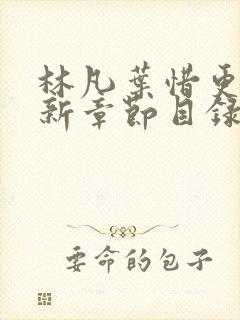 林凡葉惜更
新章節目錄
要命的包子